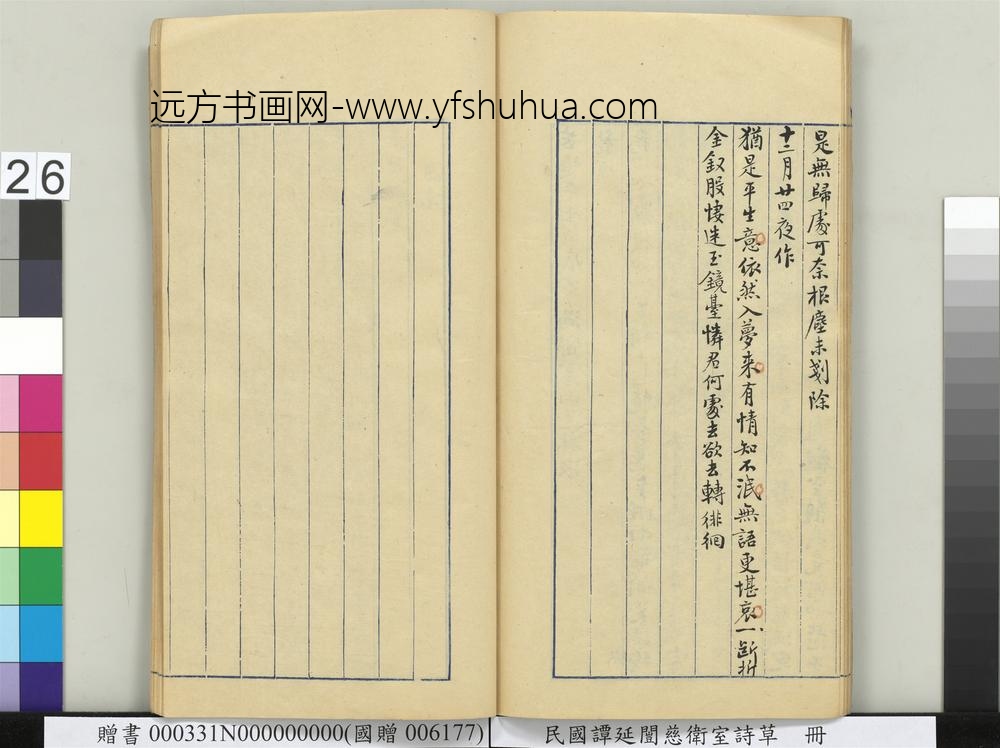 远方书画网-www.yfshuhua.com
26
是無歸處可奈根塵未剗除
十二月廿四夜作
猶是平生意依然入夢來有情知不泯無語更堪哀一斷折
金釵股悽迷玉鏡臺憐君何處去欲去轉徘徊
贈書 000331N000000000(國贈 006177)
民國譚延闓慈衛室詩草 冊